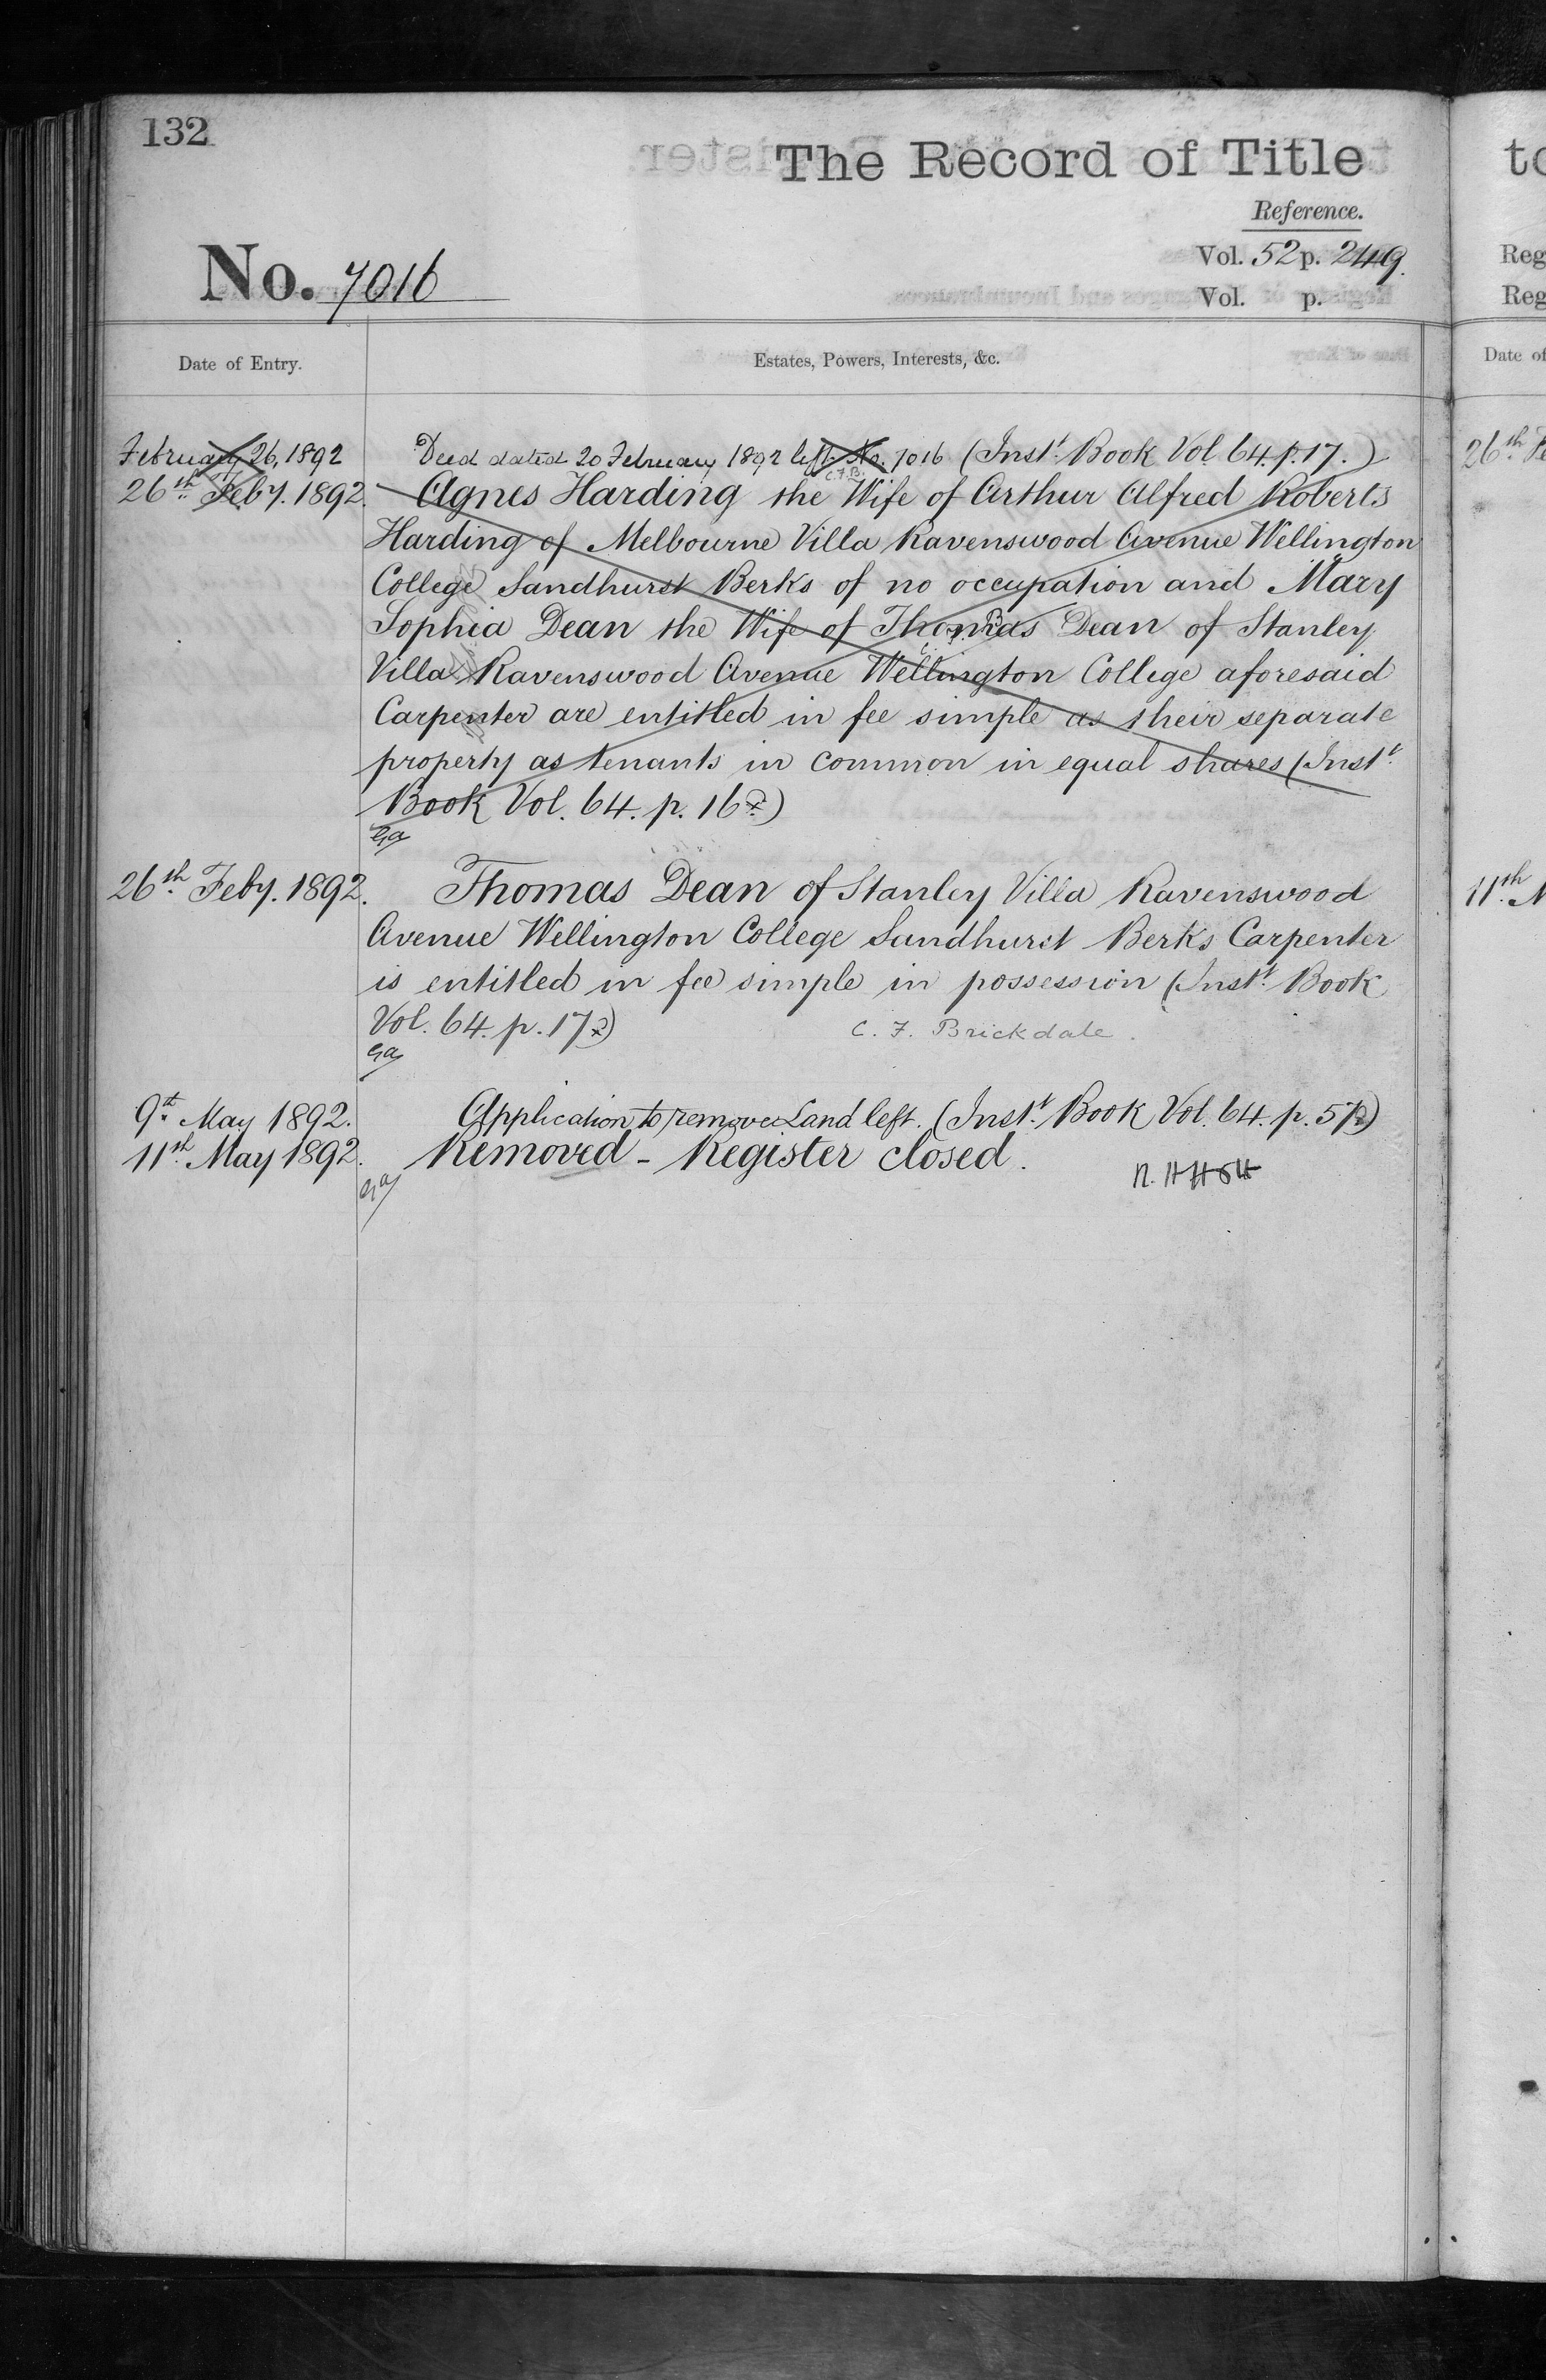 132
The Record of Title
Reference.
Vol. 52 p. 249.
No. 7016
Vol. p.
Date of Entry. Estates, Powers, Interests, &c.
February 26, 1892 Deed dated 20 February 1892 left. No. 7016 (Inst. Book Vol. 64. p. 17.)
C.F.B.
26th Feby. 1892. Agnes Harding the Wife of Arthur Alfred Roberts
Harding of Melbourne Villa Ravenswood Avenue Wellington
College Sandhurst Berks of no occupation and Mary
Sophia Dean the Wife of Thomas Dean of Stanley
Villa Ravenswood Avenue Wellington College aforesaid
Carpenter are entitled in fee simple as their separate
property as tenants in common in equal shares (Inst.
Book Vol. 64. p. 16)
26th Feby. 1892. Thomas Dean of Stanley Villa Ravenswood
Avenue Wellington College Sandhurst Berks Carpenter
is entitled in fee simple in possession (Inst. Book
Vol. 64. p. 17) C. F. Brickdale.
9th May 1892. Application to remove Land left. (Inst. Book Vol. 64. p. 57)
11th May 1892. Removed - Register closed.
to
Reg
Reg
Date of
26th Fe
11th M